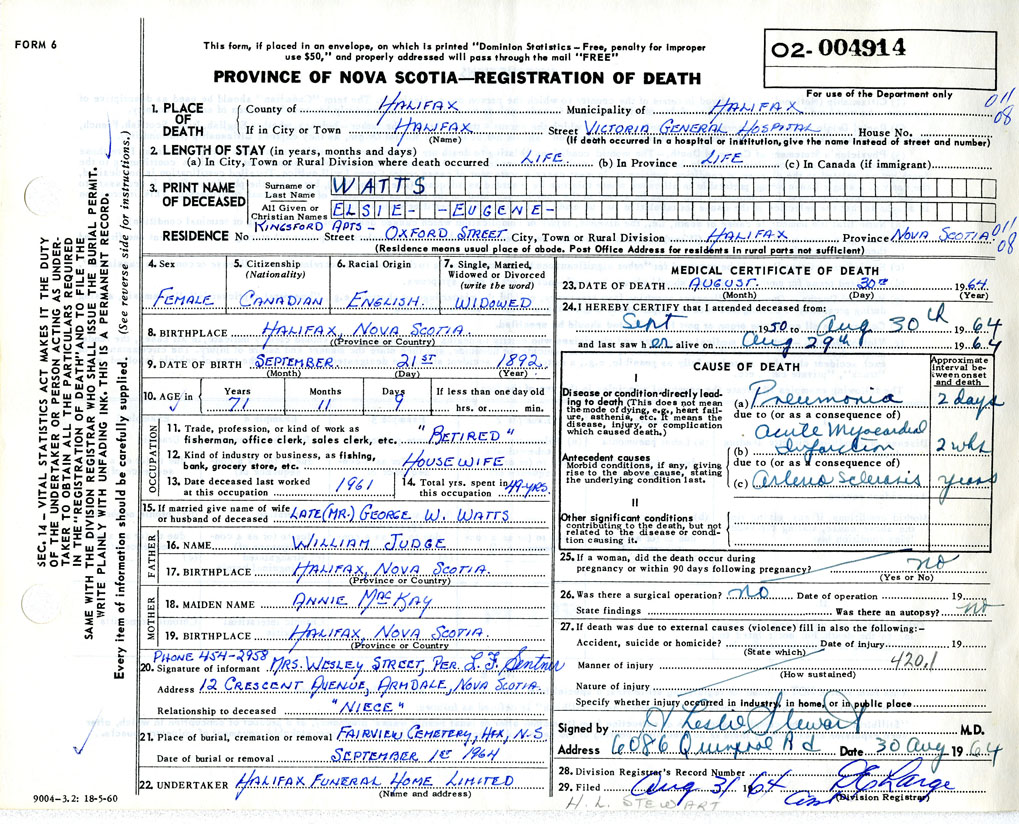 FORM 6
This form, if placed in an envelope, on which is printed "Dominion Statistics – Free, penalty for improper
use $50," and properly addressed will pass through the mail "FREE"
PROVINCE OF NOVA SCOTIA—REGISTRATION OF DEATH
02- 004914
For use of the Department only
011
08
SEC. 14 – VITAL STATISTICS ACT MAKES IT THE DUTY
OF THE UNDERTAKER OR PERSON ACTING AS UNDER-
TAKER TO OBTAIN ALL THE PARTICULARS REQUIRED
IN THE "REGISTRATION OF DEATH" AND TO FILE THE
SAME WITH THE DIVISION REGISTRAR WHO SHALL ISSUE THE BURIAL PERMIT.
WRITE PLAINLY WITH UNFADING INK. THIS IS A PERMANENT RECORD.
Every item of information should be carefully supplied. (See reverse side for instructions.)
1. PLACE OF DEATH
County of HALIFAX Municipality of HALIFAX
If in City or Town HALIFAX Street VICTORIA GENERAL HOSPITAL House No.
(Name) (If death occurred in a hospital or institution, give the name instead of street and number)
2. LENGTH OF STAY (in years, months and days)
(a) In City, Town or Rural Division where death occurred LIFE (b) In Province LIFE (c) In Canada (if immigrant)
3. PRINT NAME OF DECEASED
Surname or Last Name WATTS
All Given or Christian Names ELSIE- -EUGENE-
RESIDENCE No KINGSFORD APTS - Street OXFORD STREET City, Town or Rural Division HALIFAX Province NOVA SCOTIA 011
08
(Residence means usual place of abode. Post Office Address for residents in rural parts not sufficient)
4. Sex
FEMALE
5. Citizenship
(Nationality)
CANADIAN
6. Racial Origin
ENGLISH.
7. Single, Married,
Widowed or Divorced
(write the word)
WIDOWED
8. BIRTHPLACE HALIFAX, NOVA SCOTIA
(Province or Country)
9. DATE OF BIRTH SEPTEMBER 21ST 1892
(Month) (Day) (Year)
10. AGE in
Years Months Days If less than one day old
71 11 9 hrs. or min.
OCCUPATION
11. Trade, profession, or kind of work as
fisherman, office clerk, sales clerk, etc. "RETIRED"
12. Kind of industry or business, as fishing,
bank, grocery store, etc. HOUSEWIFE
13. Date deceased last worked
at this occupation 1961
14. Total yrs. spent in
this occupation 49 YRS.
15. If married give name of wife
or husband of deceased LATE (MR.) GEORGE W. WATTS
FATHER
16. NAME WILLIAM JUDGE
17. BIRTHPLACE HALIFAX, NOVA SCOTIA.
(Province or Country)
MOTHER
18. MAIDEN NAME ANNIE MacKAY
19. BIRTHPLACE HALIFAX, NOVA SCOTIA.
(Province or Country)
PHONE 454-2958
20. Signature of informant MRS. WESLEY STREET, PER. L.F. Sentner
Address 12 CRESCENT AVENUE, ARMDALE, NOVA SCOTIA.
Relationship to deceased "NIECE"
21. Place of burial, cremation or removal FAIRVIEW CEMETERY, HFX, N-S
Date of burial or removal SEPTEMBER 1ST 1964
22. UNDERTAKER HALIFAX FUNERAL HOME LIMITED
(Name and address)
9004-3.2: 18-5-60
MEDICAL CERTIFICATE OF DEATH
23. DATE OF DEATH AUGUST. 30th 1964
(Month) (Day) (Year)
24. I HEREBY CERTIFY that I attended deceased from:
Sept 1950 to Aug 30th 1964
and last saw her alive on Aug 29th 1964
CAUSE OF DEATH
Approximate
interval be-
tween onset
and death
I
Disease or condition directly lead-
ing to death (This does not mean
the mode of dying, e.g., heart fail-
ure, asthenia, etc. It means the
disease, injury, or complication
which caused death.)
(a) Pneumonia 2 days
due to (or as a consequence of)
Acute Myocardial
(b) Infarction 2 wks
Antecedent causes
Morbid conditions, if any, giving
rise to the above cause, stating
the underlying condition last.
due to (or as a consequence of)
(c) Arterio Sclerosis years
II
Other significant conditions
contributing to the death, but not
related to the disease or condi-
tion causing it.
25. If a woman, did the death occur during
pregnancy or within 90 days following pregnancy? no
(Yes or No)
26. Was there a surgical operation? no Date of operation 19
State findings Was there an autopsy? no
27. If death was due to external causes (violence) fill in also the following:–
Accident, suicide or homicide? Date of injury 19
(State which)
Manner of injury 420.1
(How sustained)
Nature of injury
Specify whether injury occurred in industry, in home, or in public place
Signed by Leslie Stewart M.D.
Address 6086 Quinpool Rd Date 30 Aug 1964
28. Division Registrar's Record Number
29. Filed Aug 31 1964 Large
(Division Registrar)
H. L. STEWART